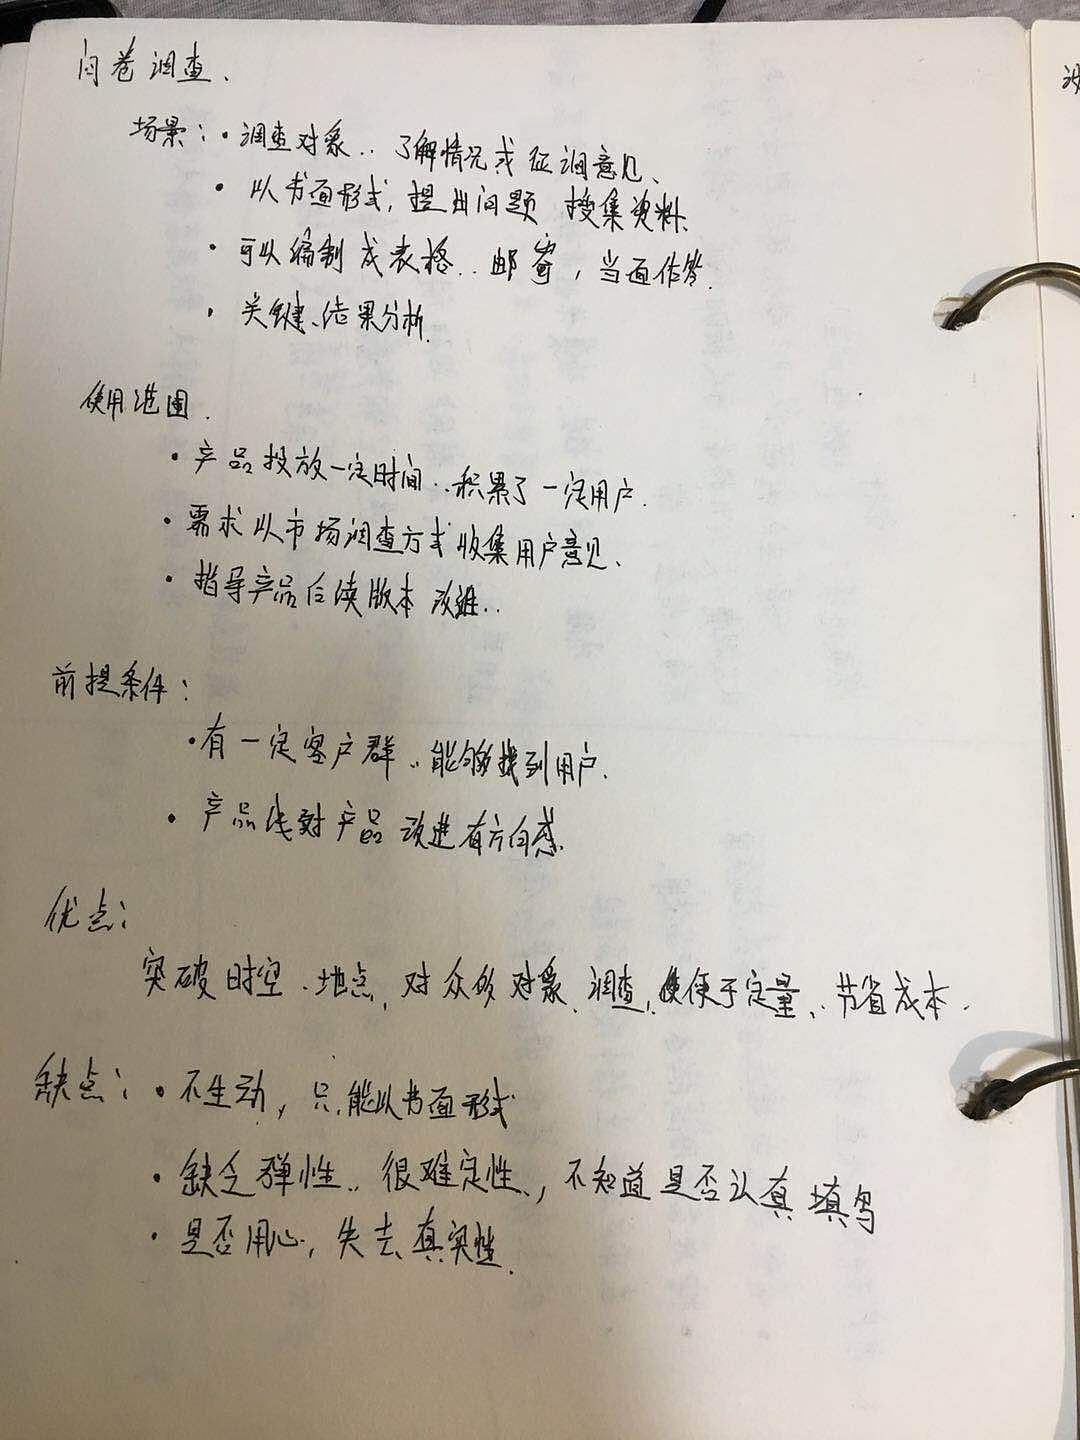 问卷调查.
场景：· 调查对象.. 了解情况或征调意见、
· 以书面形式, 提出问题 搜集资料、
· 可以编制成表格.. 邮寄, 当面作答.
· 关键、结果分析.
使用范围.
· 产品投放一定时间..积累了一定用户.
· 需求以市场调查方式收集用户意见、
· 指导产品后续版本改进..
前提条件：
· 有一定客户群..能够找到用户.
· 产品线对产品改进有方向感.
优点：
突破时空、地点, 对众多对象、调查, 便于定量、节省成本.
缺点：· 不生动, 只能以书面形式
· 缺乏弹性.. 很难定性、, 不知道是否认真填写
· 是否用心, 失去真实性.